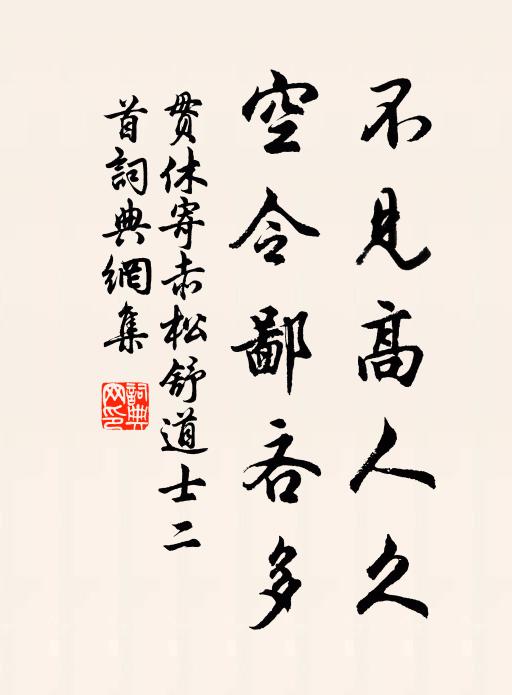 不見高人久
空令鄙吝多
貫休寄赤松舒道士二
首詞典網集
詞典網印